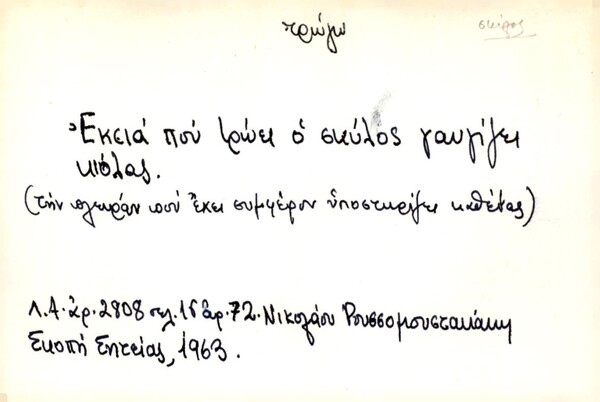 τρώγω
σκύλος
Ἐκειά πού τρώει ὁ σκύλος γαυγίζει
κιόλας.
(τήν πλευράν πού ἔχει συμφέρον ὑποστηρίζει καθένας)
Λ.Α. ἀρ. 2808 σελ. 15 ἀρ. 72. Νικολάου Ρουσσομουστακάκη
Σκοπή Σητείας, 1963.